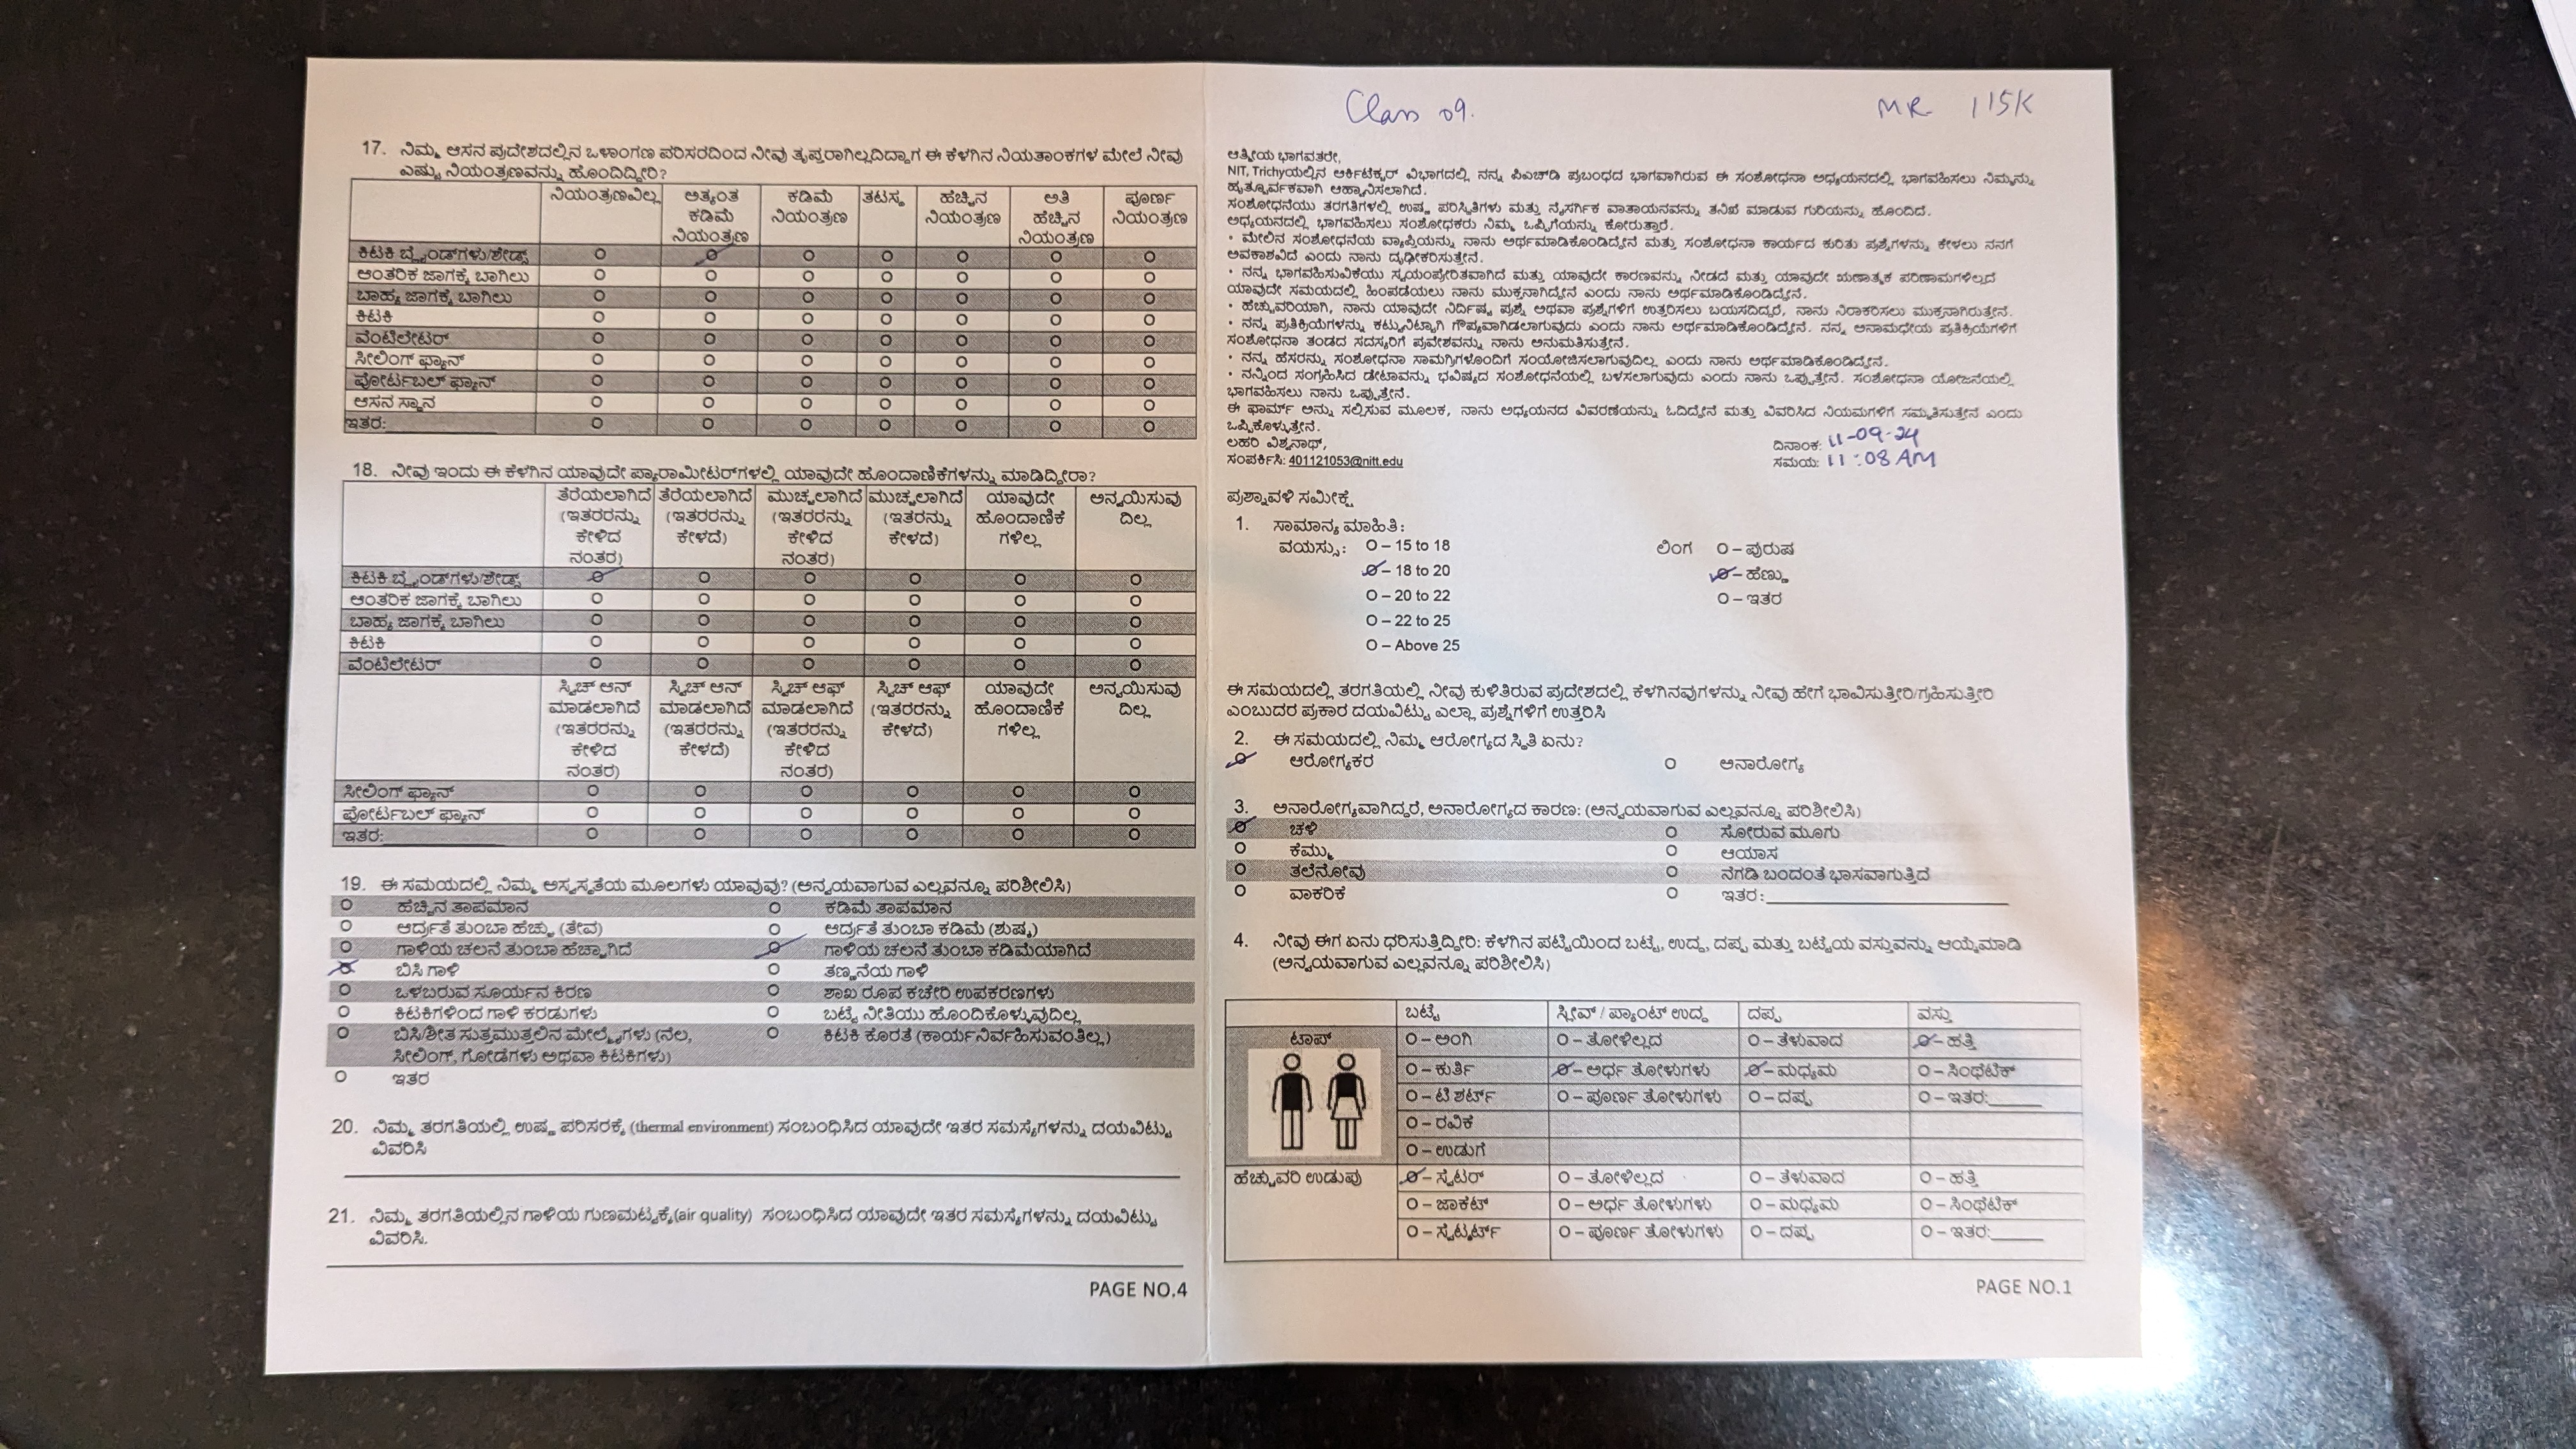 17. ನಿಮ್ಮ ಆಸನ ಪ್ರದೇಶದಲ್ಲಿನ ಒಳಾಂಗಣ ಪರಿಸರದಿಂದ ನೀವು ತೃಪ್ತರಾಗಿಲ್ಲದಿದ್ದಾಗ ಈ ಕೆಳಗಿನ ನಿಯತಾಂಕಗಳ ಮೇಲೆ ನೀವು
ಎಷ್ಟು ನಿಯಂತ್ರಣವನ್ನು ಹೊಂದಿದ್ದೀರಿ?
ನಿಯಂತ್ರಣವಿಲ್ಲ ಅತ್ಯಂತ ಕಡಿಮೆ ನಿಯಂತ್ರಣ ಕಡಿಮೆ ನಿಯಂತ್ರಣ ತಟಸ್ಥ ಹೆಚ್ಚಿನ ನಿಯಂತ್ರಣ ಅತಿ ಹೆಚ್ಚಿನ ನಿಯಂತ್ರಣ ಪೂರ್ಣ ನಿಯಂತ್ರಣ
ಕಿಟಕಿ ಬ್ಲೈಂಡ್‌ಗಳು/ಶೇಡ್ಸ್
ಆಂತರಿಕ ಜಾಗಕ್ಕೆ ಬಾಗಿಲು
ಬಾಹ್ಯ ಜಾಗಕ್ಕೆ ಬಾಗಿಲು
ಕಿಟಕಿ
ವೆಂಟಿಲೇಟರ್
ಸೀಲಿಂಗ್ ಫ್ಯಾನ್
ಪೋರ್ಟಬಲ್ ಫ್ಯಾನ್
ಆಸನ ಸ್ಥಾನ
ಇತರ:
18. ನೀವು ಇಂದು ಈ ಕೆಳಗಿನ ಯಾವುದೇ ಪ್ಯಾರಾಮೀಟರ್‌ಗಳಲ್ಲಿ ಯಾವುದೇ ಹೊಂದಾಣಿಕೆಗಳನ್ನು ಮಾಡಿದ್ದೀರಾ?
ತೆರೆಯಲಾಗಿದೆ (ಇತರರನ್ನು ಕೇಳಿದ ನಂತರ) ತೆರೆಯಲಾಗಿದೆ (ಇತರರನ್ನು ಕೇಳದೆ) ಮುಚ್ಚಲಾಗಿದೆ (ಇತರರನ್ನು ಕೇಳಿದ ನಂತರ) ಮುಚ್ಚಲಾಗಿದೆ (ಇತರನ್ನು ಕೇಳದೆ) ಯಾವುದೇ ಹೊಂದಾಣಿಕೆ ಗಳಿಲ್ಲ ಅನ್ವಯಿಸುವು ದಿಲ್ಲ
ಕಿಟಕಿ ಬ್ಲೈಂಡ್‌ಗಳು/ಶೇಡ್ಸ್
ಆಂತರಿಕ ಜಾಗಕ್ಕೆ ಬಾಗಿಲು
ಬಾಹ್ಯ ಜಾಗಕ್ಕೆ ಬಾಗಿಲು
ಕಿಟಕಿ
ವೆಂಟಿಲೇಟರ್
ಸ್ವಿಚ್ ಆನ್ ಮಾಡಲಾಗಿದೆ (ಇತರರನ್ನು ಕೇಳಿದ ನಂತರ) ಸ್ವಿಚ್ ಆನ್ ಮಾಡಲಾಗಿದೆ (ಇತರರನ್ನು ಕೇಳದೆ) ಸ್ವಿಚ್ ಆಫ್ ಮಾಡಲಾಗಿದೆ (ಇತರರನ್ನು ಕೇಳಿದ ನಂತರ) ಸ್ವಿಚ್ ಆಫ್ (ಇತರರನ್ನು ಕೇಳದೆ) ಯಾವುದೇ ಹೊಂದಾಣಿಕೆ ಗಳಿಲ್ಲ ಅನ್ವಯಿಸುವು ದಿಲ್ಲ
ಸೀಲಿಂಗ್ ಫ್ಯಾನ್
ಪೋರ್ಟಬಲ್ ಫ್ಯಾನ್
ಇತರ:
19. ಈ ಸಮಯದಲ್ಲಿ ನಿಮ್ಮ ಅಸ್ವಸ್ಥತೆಯ ಮೂಲಗಳು ಯಾವುವು? (ಅನ್ವಯವಾಗುವ ಎಲ್ಲವನ್ನೂ ಪರಿಶೀಲಿಸಿ)
ಹೆಚ್ಚಿನ ತಾಪಮಾನ ಕಡಿಮೆ ತಾಪಮಾನ
ಆರ್ದ್ರತೆ ತುಂಬಾ ಹೆಚ್ಚು (ತೇವ) ಆರ್ದ್ರತೆ ತುಂಬಾ ಕಡಿಮೆ (ಶುಷ್ಕ)
ಗಾಳಿಯ ಚಲನೆ ತುಂಬಾ ಹೆಚ್ಚಾಗಿದೆ ಗಾಳಿಯ ಚಲನೆ ತುಂಬಾ ಕಡಿಮೆಯಾಗಿದೆ
ಬಿಸಿ ಗಾಳಿ ತಣ್ಣನೆಯ ಗಾಳಿ
ಒಳಬರುವ ಸೂರ್ಯನ ಕಿರಣ ಶಾಖ ರೂಪ ಕಚೇರಿ ಉಪಕರಣಗಳು
ಕಿಟಕಿಗಳಿಂದ ಗಾಳಿ ಕರಡುಗಳು ಬಟ್ಟೆ ನೀತಿಯು ಹೊಂದಿಕೊಳ್ಳುವುದಿಲ್ಲ
ಬಿಸಿ/ಶೀತ ಸುತ್ತಮುತ್ತಲಿನ ಮೇಲ್ಮೈಗಳು (ನೆಲ, ಕಿಟಕಿ ಕೊರತೆ (ಕಾರ್ಯನಿರ್ವಹಿಸುವಂತಿಲ್ಲ)
ಸೀಲಿಂಗ್, ಗೋಡೆಗಳು ಅಥವಾ ಕಿಟಕಿಗಳು)
ಇತರ
20. ನಿಮ್ಮ ತರಗತಿಯಲ್ಲಿ ಉಷ್ಣ ಪರಿಸರಕ್ಕೆ (thermal environment) ಸಂಬಂಧಿಸಿದ ಯಾವುದೇ ಇತರ ಸಮಸ್ಯೆಗಳನ್ನು ದಯವಿಟ್ಟು
ವಿವರಿಸಿ
21. ನಿಮ್ಮ ತರಗತಿಯಲ್ಲಿನ ಗಾಳಿಯ ಗುಣಮಟ್ಟಕ್ಕೆ(air quality) ಸಂಬಂಧಿಸಿದ ಯಾವುದೇ ಇತರ ಸಮಸ್ಯೆಗಳನ್ನು ದಯವಿಟ್ಟು
ವಿವರಿಸಿ.
PAGE NO.4
Class 09. MR 115K
ಆತ್ಮೀಯ ಭಾಗವತರೇ,
NIT, Trichyಯಲ್ಲಿನ ಆರ್ಕಿಟೆಕ್ಚರ್ ವಿಭಾಗದಲ್ಲಿ ನನ್ನ ಪಿಎಚ್‌ಡಿ ಪ್ರಬಂಧದ ಭಾಗವಾಗಿರುವ ಈ ಸಂಶೋಧನಾ ಅಧ್ಯಯನದಲ್ಲಿ ಭಾಗವಹಿಸಲು ನಿಮ್ಮನ್ನು
ಹೃತ್ಪೂರ್ವಕವಾಗಿ ಆಹ್ವಾನಿಸಲಾಗಿದೆ.
ಸಂಶೋಧನೆಯು ತರಗತಿಗಳಲ್ಲಿ ಉಷ್ಣ ಪರಿಸ್ಥಿತಿಗಳು ಮತ್ತು ನೈಸರ್ಗಿಕ ವಾತಾಯನವನ್ನು ತನಿಖೆ ಮಾಡುವ ಗುರಿಯನ್ನು ಹೊಂದಿದೆ.
ಅಧ್ಯಯನದಲ್ಲಿ ಭಾಗವಹಿಸಲು ಸಂಶೋಧಕರು ನಿಮ್ಮ ಒಪ್ಪಿಗೆಯನ್ನು ಕೋರುತ್ತಾರೆ.
• ಮೇಲಿನ ಸಂಶೋಧನೆಯ ವ್ಯಾಪ್ತಿಯನ್ನು ನಾನು ಅರ್ಥಮಾಡಿಕೊಂಡಿದ್ದೇನೆ ಮತ್ತು ಸಂಶೋಧನಾ ಕಾರ್ಯದ ಕುರಿತು ಪ್ರಶ್ನೆಗಳನ್ನು ಕೇಳಲು ನನಗೆ
ಅವಕಾಶವಿದೆ ಎಂದು ನಾನು ದೃಢೀಕರಿಸುತ್ತೇನೆ.
• ನನ್ನ ಭಾಗವಹಿಸುವಿಕೆಯು ಸ್ವಯಂಪ್ರೇರಿತವಾಗಿದೆ ಮತ್ತು ಯಾವುದೇ ಕಾರಣವನ್ನು ನೀಡದೆ ಮತ್ತು ಯಾವುದೇ ಋಣಾತ್ಮಕ ಪರಿಣಾಮಗಳಿಲ್ಲದೆ
ಯಾವುದೇ ಸಮಯದಲ್ಲಿ ಹಿಂಪಡೆಯಲು ನಾನು ಮುಕ್ತನಾಗಿದ್ದೇನೆ ಎಂದು ನಾನು ಅರ್ಥಮಾಡಿಕೊಂಡಿದ್ದೇನೆ.
• ಹೆಚ್ಚುವರಿಯಾಗಿ, ನಾನು ಯಾವುದೇ ನಿರ್ದಿಷ್ಟ ಪ್ರಶ್ನೆ ಅಥವಾ ಪ್ರಶ್ನೆಗಳಿಗೆ ಉತ್ತರಿಸಲು ಬಯಸದಿದ್ದರೆ, ನಾನು ನಿರಾಕರಿಸಲು ಮುಕ್ತನಾಗಿರುತ್ತೇನೆ.
• ನನ್ನ ಪ್ರತಿಕ್ರಿಯೆಗಳನ್ನು ಕಟ್ಟುನಿಟ್ಟಾಗಿ ಗೌಪ್ಯವಾಗಿಡಲಾಗುವುದು ಎಂದು ನಾನು ಅರ್ಥಮಾಡಿಕೊಂಡಿದ್ದೇನೆ. ನನ್ನ ಅನಾಮಧೇಯ ಪ್ರತಿಕ್ರಿಯೆಗಳಿಗೆ
ಸಂಶೋಧನಾ ತಂಡದ ಸದಸ್ಯರಿಗೆ ಪ್ರವೇಶವನ್ನು ನಾನು ಅನುಮತಿಸುತ್ತೇನೆ.
• ನನ್ನ ಹೆಸರನ್ನು ಸಂಶೋಧನಾ ಸಾಮಗ್ರಿಗಳೊಂದಿಗೆ ಸಂಯೋಜಿಸಲಾಗುವುದಿಲ್ಲ ಎಂದು ನಾನು ಅರ್ಥಮಾಡಿಕೊಂಡಿದ್ದೇನೆ.
• ನನ್ನಿಂದ ಸಂಗ್ರಹಿಸಿದ ಡೇಟಾವನ್ನು ಭವಿಷ್ಯದ ಸಂಶೋಧನೆಯಲ್ಲಿ ಬಳಸಲಾಗುವುದು ಎಂದು ನಾನು ಒಪ್ಪುತ್ತೇನೆ. ಸಂಶೋಧನಾ ಯೋಜನೆಯಲ್ಲಿ
ಭಾಗವಹಿಸಲು ನಾನು ಒಪ್ಪುತ್ತೇನೆ.
ಈ ಫಾರ್ಮ್ ಅನ್ನು ಸಲ್ಲಿಸುವ ಮೂಲಕ, ನಾನು ಅಧ್ಯಯನದ ವಿವರಣೆಯನ್ನು ಓದಿದ್ದೇನೆ ಮತ್ತು ವಿವರಿಸಿದ ನಿಯಮಗಳಿಗೆ ಸಮ್ಮತಿಸುತ್ತೇನೆ ಎಂದು
ಒಪ್ಪಿಕೊಳ್ಳುತ್ತೇನೆ.
ಲಹರಿ ವಿಶ್ವನಾಥ್, ದಿನಾಂಕ: 11-09-24
ಸಂಪರ್ಕಿಸಿ: 401121053@nitt.edu ಸಮಯ: 11:08 AM
ಪ್ರಶ್ನಾವಳಿ ಸಮೀಕ್ಷೆ
1. ಸಾಮಾನ್ಯ ಮಾಹಿತಿ:
ವಯಸ್ಸು: O – 15 to 18 ಲಿಂಗ O – ಪುರುಷ
O – 18 to 20 O – ಹೆಣ್ಣು
O – 20 to 22 O – ಇತರ
O – 22 to 25
O – Above 25
ಈ ಸಮಯದಲ್ಲಿ ತರಗತಿಯಲ್ಲಿ ನೀವು ಕುಳಿತಿರುವ ಪ್ರದೇಶದಲ್ಲಿ ಕೆಳಗಿನವುಗಳನ್ನು ನೀವು ಹೇಗೆ ಭಾವಿಸುತ್ತೀರಿ/ಗ್ರಹಿಸುತ್ತೀರಿ
ಎಂಬುದರ ಪ್ರಕಾರ ದಯವಿಟ್ಟು ಎಲ್ಲಾ ಪ್ರಶ್ನೆಗಳಿಗೆ ಉತ್ತರಿಸಿ
2. ಈ ಸಮಯದಲ್ಲಿ ನಿಮ್ಮ ಆರೋಗ್ಯದ ಸ್ಥಿತಿ ಏನು?
ಆರೋಗ್ಯಕರ ಅನಾರೋಗ್ಯ
3. ಅನಾರೋಗ್ಯವಾಗಿದ್ದರೆ, ಅನಾರೋಗ್ಯದ ಕಾರಣ: (ಅನ್ವಯವಾಗುವ ಎಲ್ಲವನ್ನೂ ಪರಿಶೀಲಿಸಿ)
ಚಳಿ ಸೋರುವ ಮೂಗು
ಕೆಮ್ಮು ಆಯಾಸ
ತಲೆನೋವು ನೆಗಡಿ ಬಂದಂತೆ ಭಾಸವಾಗುತ್ತಿದೆ
ವಾಕರಿಕೆ ಇತರ:
4. ನೀವು ಈಗ ಏನು ಧರಿಸುತ್ತಿದ್ದೀರಿ: ಕೆಳಗಿನ ಪಟ್ಟಿಯಿಂದ ಬಟ್ಟೆ, ಉದ್ದ, ದಪ್ಪ ಮತ್ತು ಬಟ್ಟೆಯ ವಸ್ತುವನ್ನು ಆಯ್ಕೆಮಾಡಿ
(ಅನ್ವಯವಾಗುವ ಎಲ್ಲವನ್ನೂ ಪರಿಶೀಲಿಸಿ)
ಬಟ್ಟೆ ಸ್ಲೀವ್ / ಪ್ಯಾಂಟ್ ಉದ್ದ ದಪ್ಪ ವಸ್ತು
ಟಾಪ್ O – ಅಂಗಿ O – ತೋಳಿಲ್ಲದ O – ತೆಳುವಾದ O – ಹತ್ತಿ
O – ಕುರ್ತಿ O – ಅರ್ಧ ತೋಳುಗಳು O – ಮಧ್ಯಮ O – ಸಿಂಥೆಟಿಕ್
O – ಟಿ ಶರ್ಟ್ O – ಪೂರ್ಣ ತೋಳುಗಳು O – ದಪ್ಪ O – ಇತರ:
O – ರವಿಕೆ
O – ಉಡುಗೆ
ಹೆಚ್ಚುವರಿ ಉಡುಪು O – ಸ್ವೆಟರ್ O – ತೋಳಿಲ್ಲದ O – ತೆಳುವಾದ O – ಹತ್ತಿ
O – ಜಾಕೆಟ್ O – ಅರ್ಧ ತೋಳುಗಳು O – ಮಧ್ಯಮ O – ಸಿಂಥೆಟಿಕ್
O – ಸ್ವೆಟ್ಶರ್ಟ್ O – ಪೂರ್ಣ ತೋಳುಗಳು O – ದಪ್ಪ O – ಇತರ:
PAGE NO.1